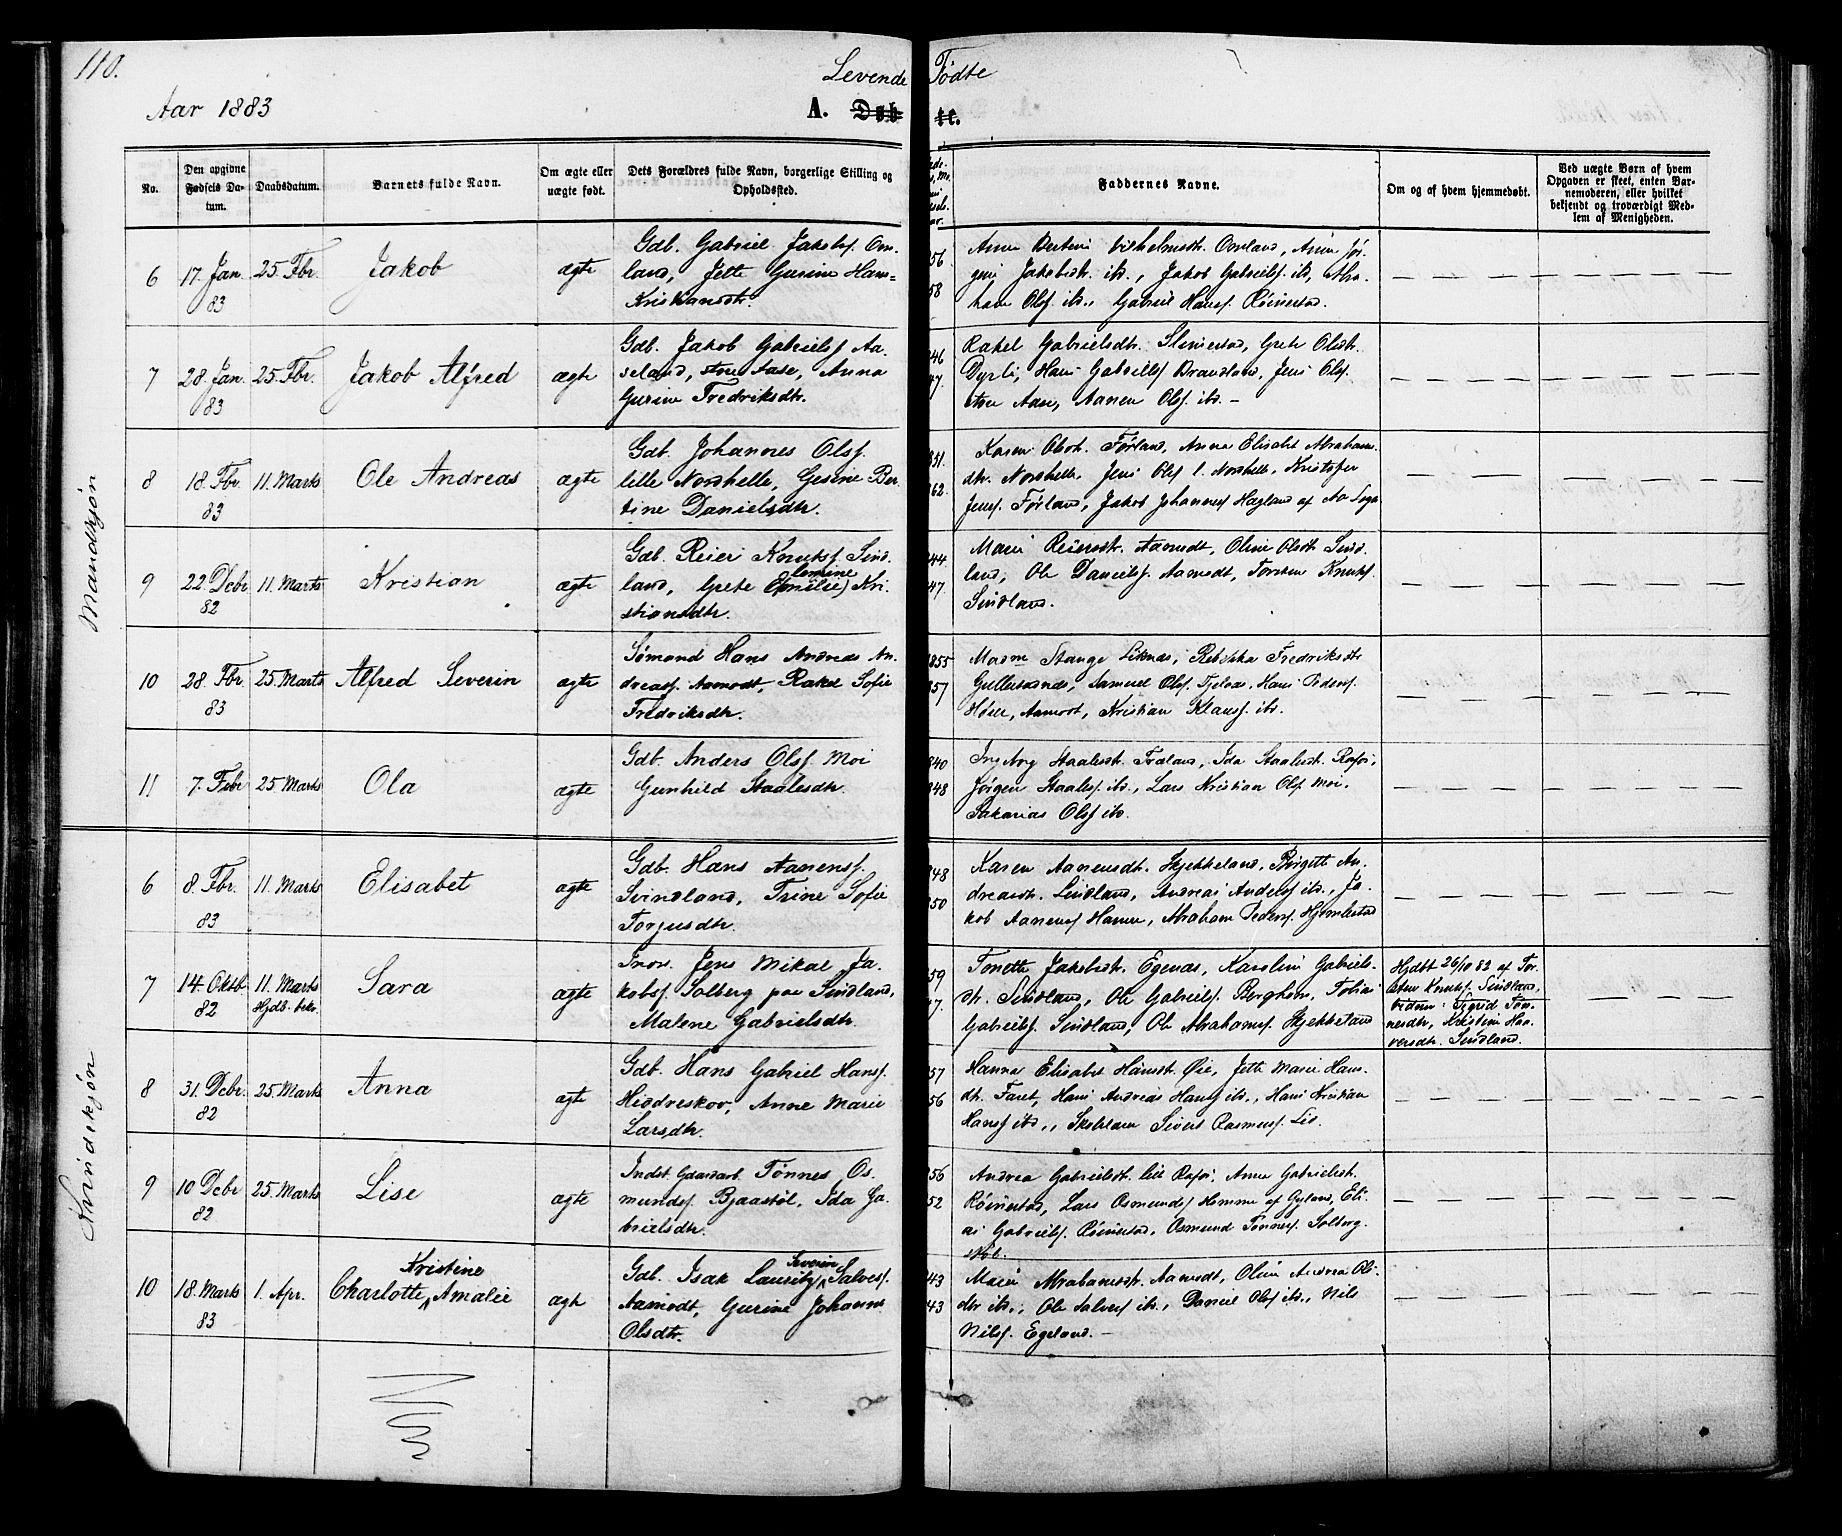 110.
Levende Fødte
Aar 1883
A. Døbte.
No.
Den opgivne Fødsels Datum.
Daabsdatum.
Barnets fulde Navn.
Om ægte eller uægte født.
Dets Forældres fulde Navn, borgerlige Stilling og Opholdssted.
Faddernes Navne.
Om og af hvem hjemmedøbt.
Ved uægte Børn af hvem Opgaven er skeet, enten Barnemoderen, eller hvilket bekjendt og troværdigt Medlem af Menigheden.
Mandkjøn
6 17. Jan. 83 25. Fbr. Jakob ægte
Gdb. Gabriel Jakobsf. Om-
land, Jette Gurine Hans-
Kristiansdtr.
56
58
Anne Vilhelmsdtr. Omland, Anne Jør-
gine Jakobsdtr. ibd., Jakob Gabrielsf. ibd., Abra-
ham Olsf. ibd., Gabriel Hansf. Røinestad.
7 28. Jan. 83 25. Fbr. Jakob Alfred ægte
Gdb. Jakob Gabrielsf. Aa-
seland, store Aase, Anna
Gurine Fredriksdtr.
46
47
Rakel Gabrielsdtr. Slimestad, Grete Olsdtr.
Dyrli, Hans Gabrielsf. Brandland, Jens Olsf.
store Aase, Aanen Olsf. ibd. –
8 18. Fbr. 83 11. Marts Ole Andreas ægte
Gdb. Johannes Olsf.
lille Nordhelle, Gesine Ber-
tine Danielsdtr.
851.
62.
Karen Olsdtr. Førland, Anna Elisabet Abrahams-
dtr. Nordhelle, Jens Olsf. l. Nordhelle, Kristofer
Jensf. Førland, Jakob Johannesf. Hægland af Aa Sogn
9 22 Dcbr 82 11. Marts Kristian ægte
Gdb. Reier Knutsf. Sind-
land, Grete (Emilie) Kri-
stiansdtr.
844
47.
Maren Reiersdtr. Aamodt, Oline Olsdtr. Sind-
land, Ole Danielsf. Aamodt, Torsten Knutsf.
Sindland.
10 28. Fbr. 83 25 Marts Alfred Severin ægte
Sømand Hans Andreas An-
dreasf. Aamodt, Rakel Sofie
Fredriksdtr.
1855
857
Madm Stange Liknes, Rebekka Fredriksdtr.
Gullestanes, Samuel Olsf. Fjelsaa, Hans Pedersf.
Aamodt, Kristian Klausf. ibd.
11 7. Febr 25 Marts Ola ægte
Gdb. Anders Olsf. Moi
Gunhild Staalesdtr.
840
848
Ingeborg Staalesdtr. Ida Staalesdtr. Rafos,
Jørgen Staalesf. ibd., Lars Kristian Olsf. Moi,
Sakarias Olsf. ibd.
Kvindekjøn
6 8. Fbr. 83 11. Marts Elisabet ægte
Gdb. Hans Aanensf.
Svindland, Trine Sofie
Torjusdtr.
848
850
Karen Aanensdtr. Skjekkeland, Birgitte An-
dreasdtr. Sindland, Andreas Andersf. ibd., Ja-
kob Aanensf. Abraham Pedersf. Hjemlestad
7 14. Oktb 82 11. Marts Hjdb. bekr. Sara ægte
Inds. Jens Mikal Ja-
kobsf. Solberg paa Sindland,
Malene Gabrielsdtr.
59
47.
Tonette Jakobsdtr. Egenæs, Karoline Gabriels-
dtr. Sindland, Ole Gabrielsf. Berghom, Tobias
Gabrielsf. Sindland, Ole Abrahamsf. Skjekkeland
Hjdbt 26/10 82 af Tor-
sten Knutsf. Sindland,
vidner: Sigrid Tøn-
nesdtr, Kristine Haa-
versdtr. Sindland.
8 31. Dcbr. 82 25. Marts Anna ægte
Gdb. Hans Gabriel Hansf.
Hiddreskov, Anne Marie
Larsdtr.
857
56
Hanna Elisabet Hansdtr. Øie, Jette Marie Hans-
dtr. Faret, Hans Andreas Hansf. ibd., Hans Kristian
Hansf. ibd., Skolelærer Sivert Rasmusf. Lid.
9 10 Dcbr 82 25. Marts Lise ægte
Indst. Gaardarb. Tønnes Os-
mundsf. Bjaastøl, Ida Ga-
brielsdtr.
856
52
Andrea Gabrielsdtr. lille Rafos, Anna Gabrielsdtr.
Røinestad, Lars Osmundsf. Homme af Gyland, Eli-
as Gabrielsf. Røinestad, Osmund Tønnesf. Solberg
10 18. Marts 83 1. Apr. Charlotte Kristine Amalie ægte
Gdb. Isak Lauritz Severin Salvesf.
Aamodt, Gurine Johanne
Olsdtr.
843
843
Maren Abrahamsdtr. Aamodt, Oline Andrea Ols-
dtr ibd., Ole Salvesf. ibd., Daniel Olsf. ibd., Nils
Nilsf. Egeland. –